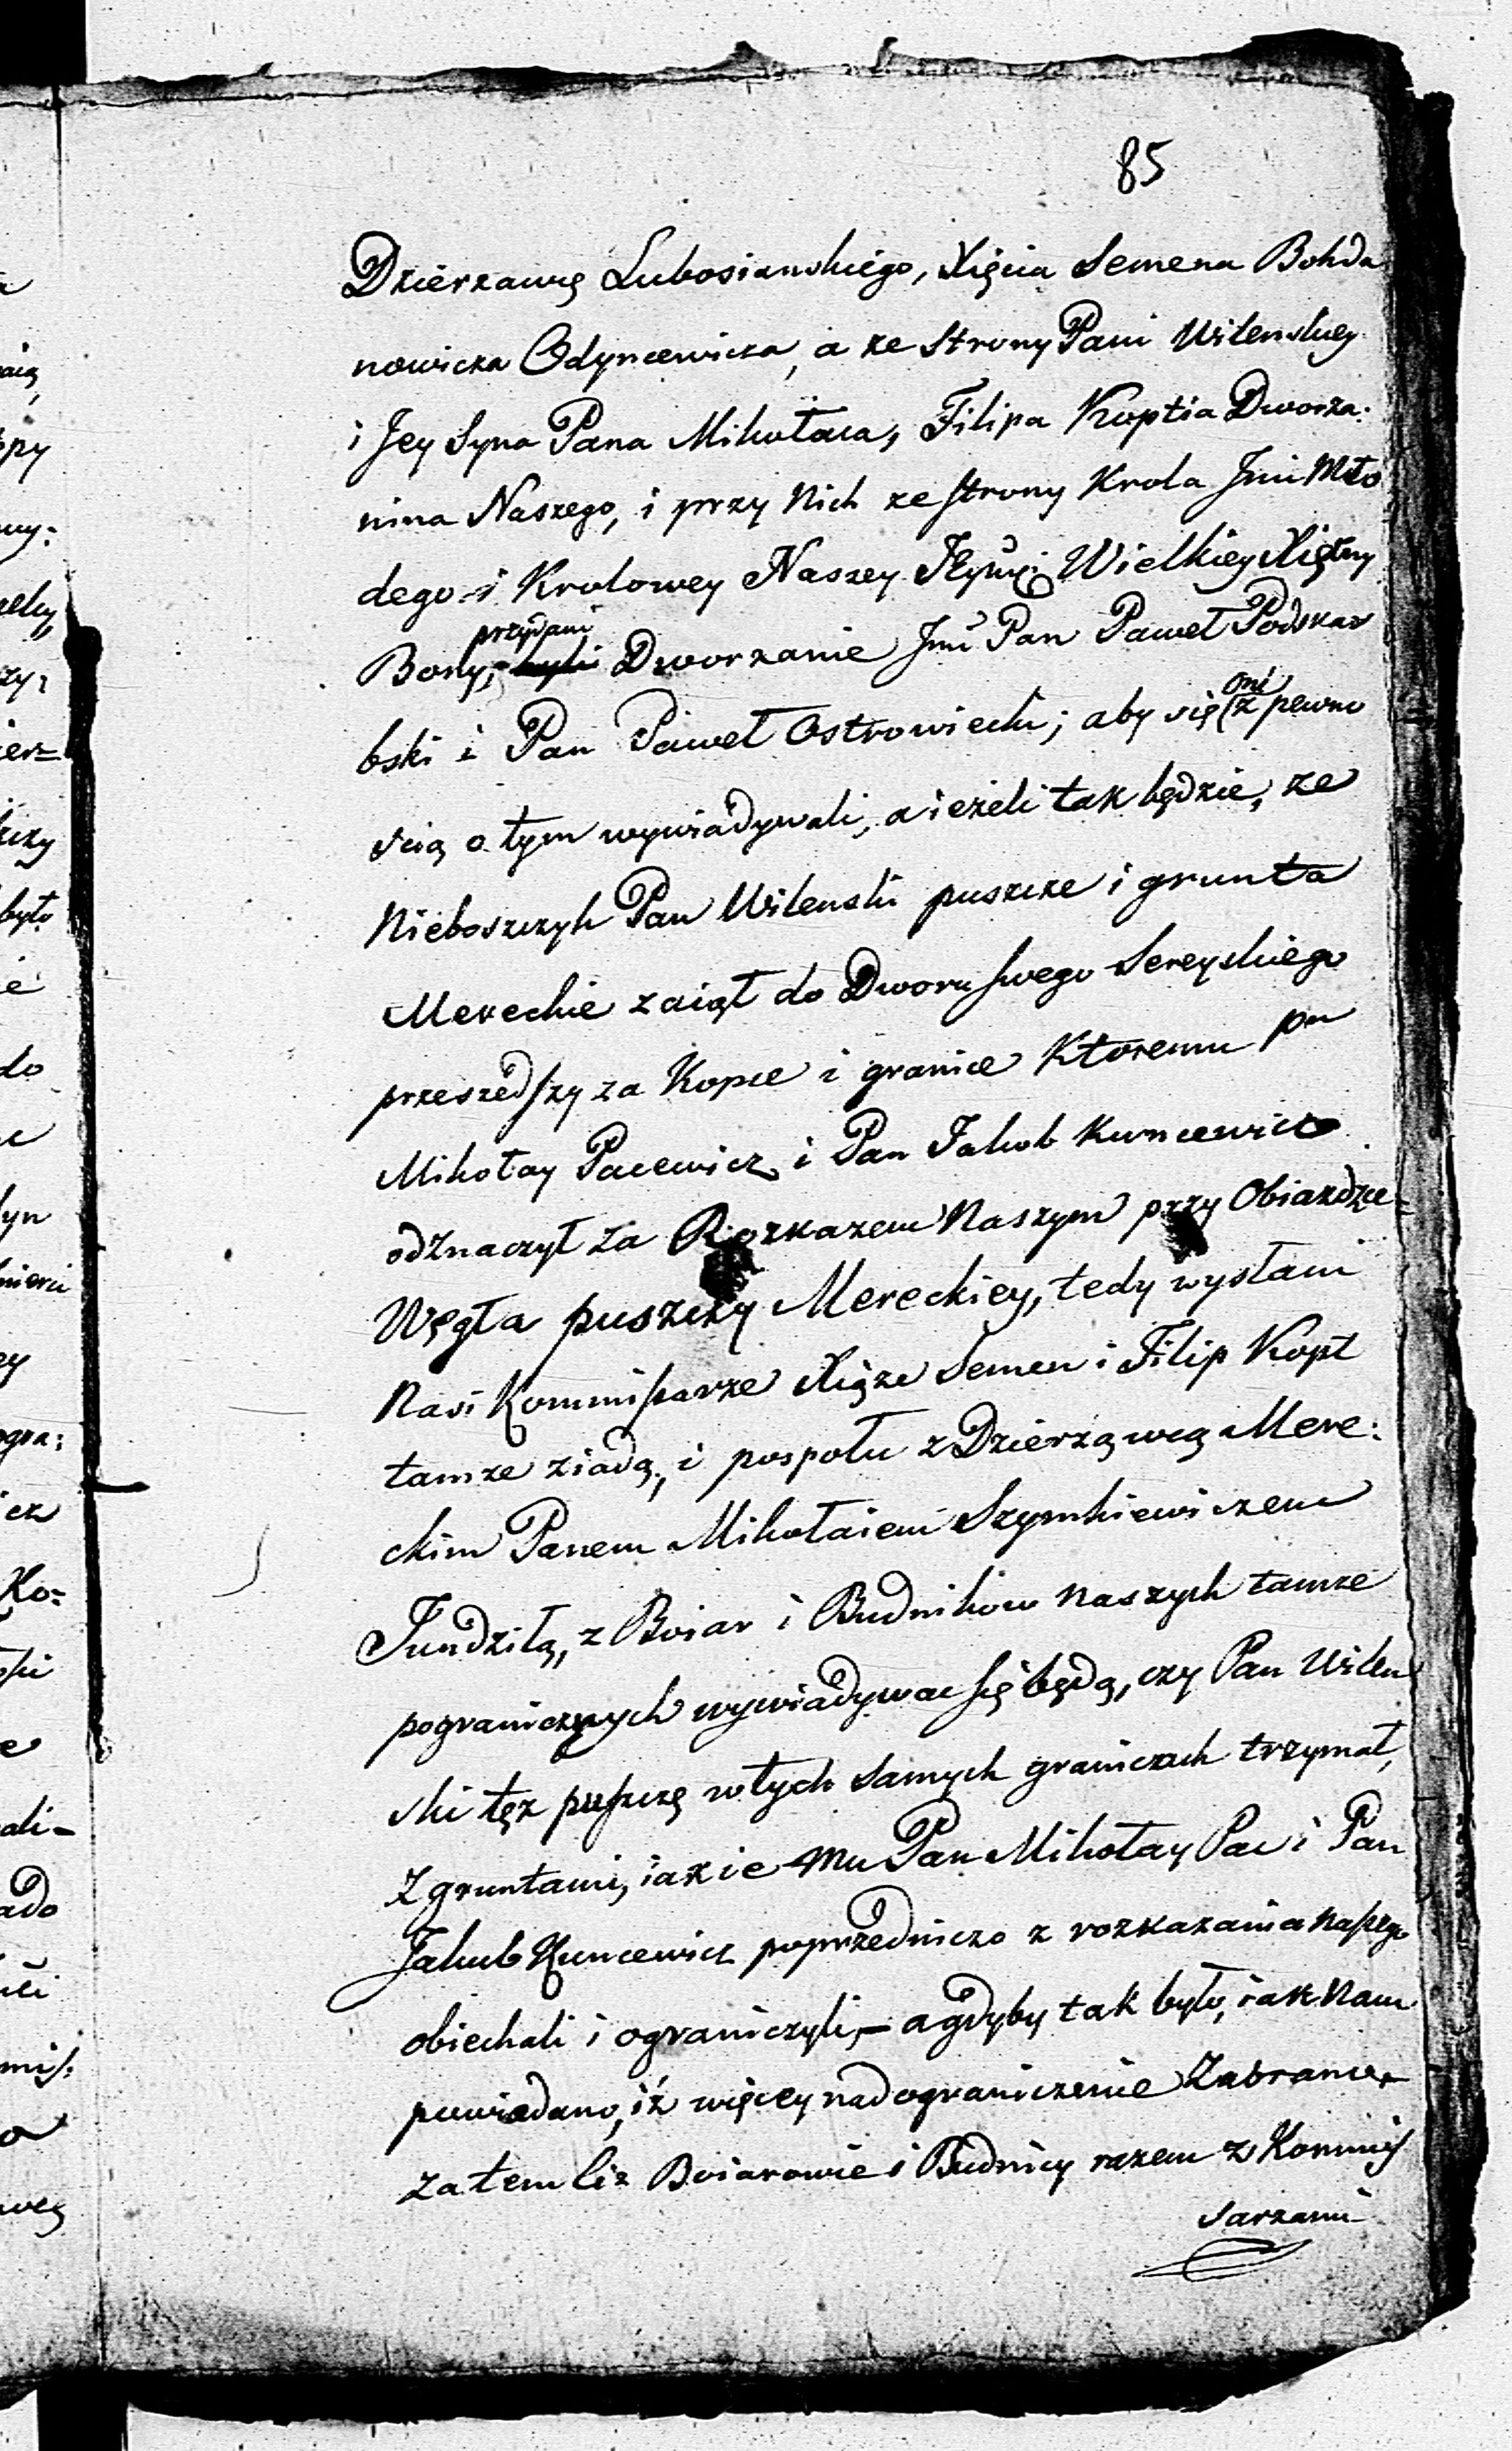 85
Dzierzawcę Lubosianskiego, Xięcia Semena Bohda
nowicza Odyncewicza, a ze strony Pani Wilenskiey
i Jey Syna Pana Mikołaia, Filipa Koptia Dworza:
nina Naszego, i przy Nich ze strony Krola Jmi Mło
dego i Krolowey Naszey Wielkiey Xiężny
przydani
Bony, byli Dworzanie Jmć Pan Paweł Podskar
bski i Pan Paweł Ostrowiecki; aby się oni z pewno
scią o tym wywiadywali, a ieżeli tak będzie, ze
Nieboszczyk Pan Wilenski puszcze i grunta
Mereckie zaiął do Dworu swego Sereyskiego
przeszedszy za Kopce i granice Ktoremu pn
Mikołay Pacewicz i Pan Jakob Kuncewicz
odznaczył za Rozkazem Naszym przy Obiazdzce
Węgła puszczy Mereckiey, tedy wysłani
Nasi Kommissarze Xiąze Semen i Filip Kopt
tamze ziadą, i pospołu z Dzierzawcą Mere:
ckim Panem Mikołaiem Szymkiewiczem
Jundziłą, z Boiar i Budnikow naszych tamze
pogranicznych wywiadywac się będą, czy Pan Wilen
ski tęz puszczę w tych samych graniczach trzymał,
z gruntami, iakie mu Pan Mikołay Pac i Pan
Jakub Kuncewicz poprzedniczo z rozkazania naszego
obiechali i ograniczyli, – a gdyby tak było, iak Nam
powiedano, iż więcey nad ograniczenie Zabrano,
zatem ciż Boiarowie i Budnicy razem z Kommis
sarzami